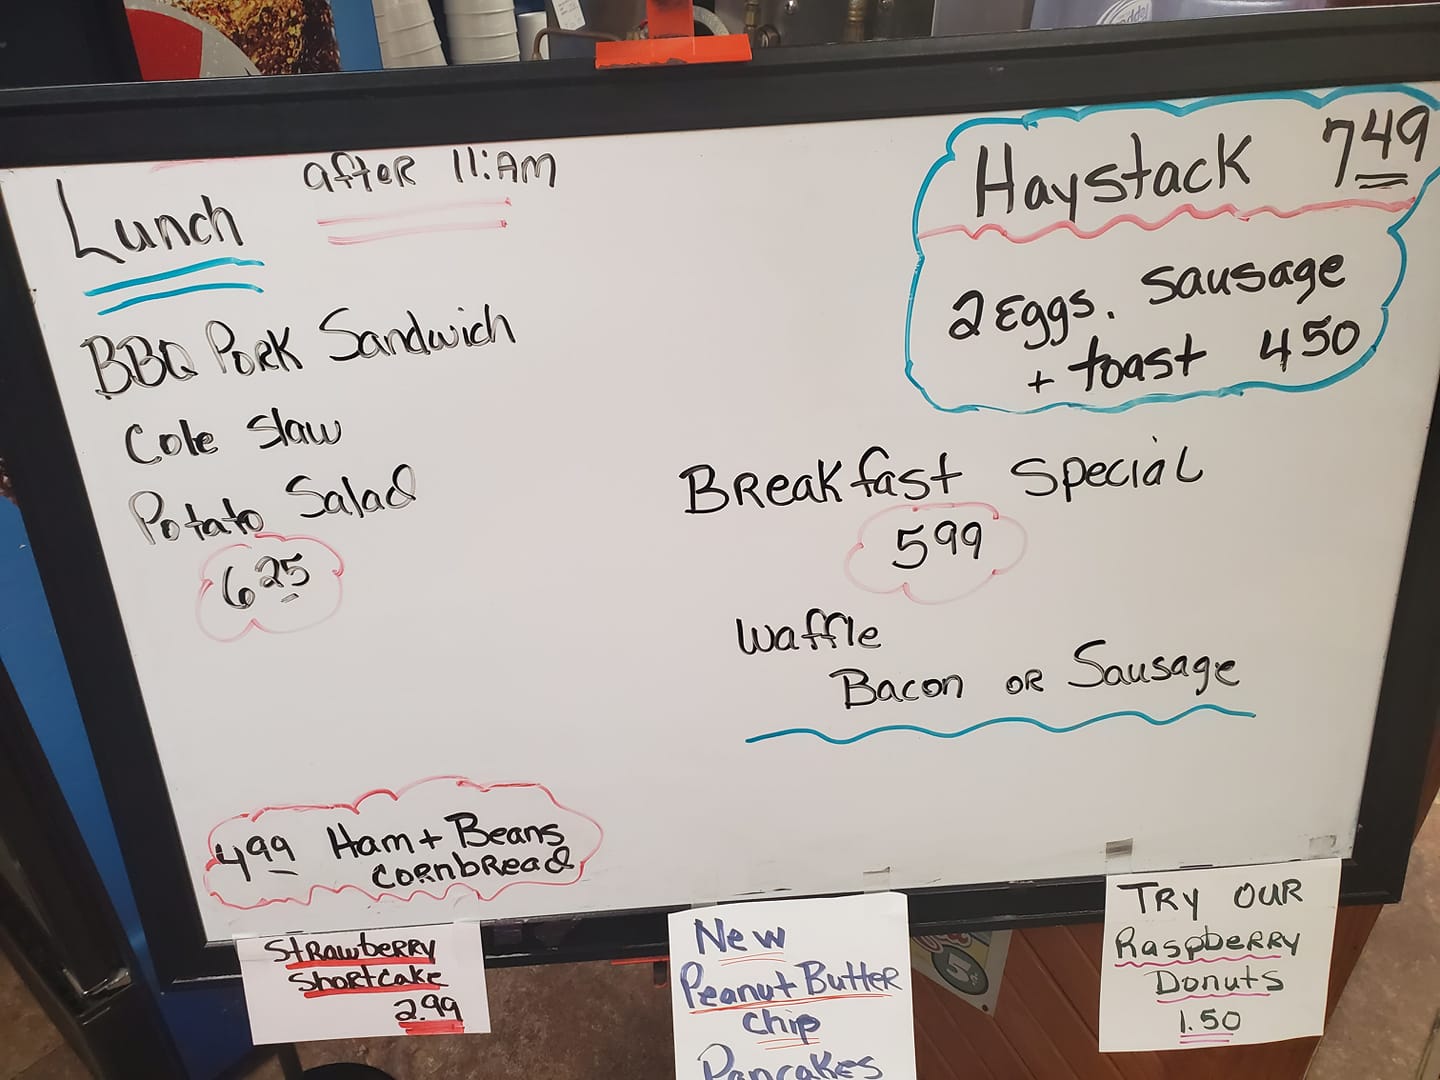 Lunch after 11:AM
BBQ Pork Sandwich
Cole Slaw
Potato Salad
6 25
4 99 Ham + Beans
Cornbread
Haystack 7 49
2 Eggs. Sausage
+ toast 4 50
Breakfast Special
5 99
Waffle
Bacon or Sausage
Strawberry
Shortcake
2.99
New
Peanut Butter
Chip
Pancakes
TRY OUR
Raspberry
Donuts
1.50